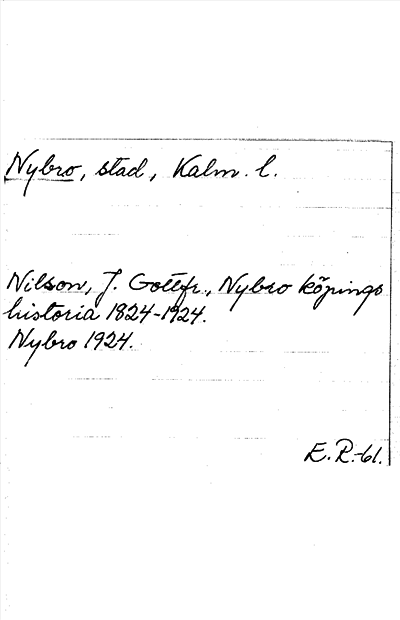 Nybro, stad, Kalm. l.
Nilson, J. Gottfr., Nybro köpings
historia 1824-1924.
Nybro 1924.
E.R.-61.